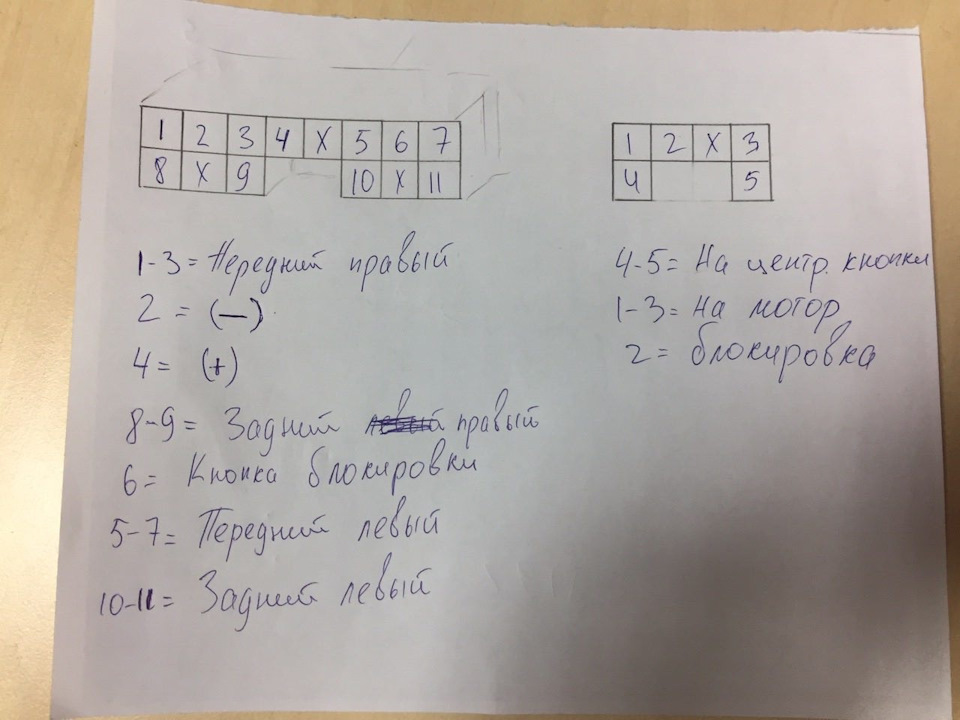 1 2 3 4 X 5 6 7
8 X 9 10 X 11
1-3 = Передний правый
2 = (—)
4 = (+)
8-9 = Задний левый правый
6 = Кнопка блокировки
5-7 = Передний левый
10-11 = Задний левый
1 2 X 3
4 5
4-5 = На центр. кнопки
1-3 = на мотор
2 = блокировка